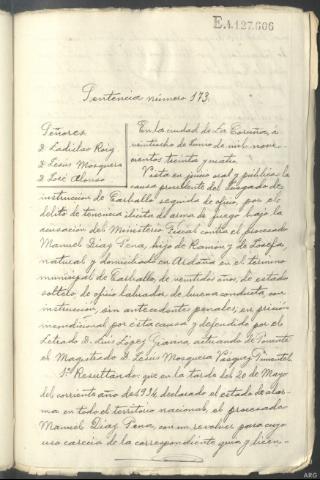 E.4.127.606
Sentencia número 173.
Señores
D. Ladislao Roig
D. Jesús Mosquera
D. José Alonso
En la ciudad de La Coruña, a
veintiocho de Junio de mil nove-
cientos treinta y cuatro.
Vista en juicio oral y pública la
causa procedente del Juzgado de
instrucción de Carballo seguida de oficio, por el
delito de tenencia ilícita de arma de fuego bajo la
acusación del Ministerio Fiscal contra el procesado
Manuel Díaz Pena, hijo de Ramón y de Josefa,
natural y domiciliado en Ardaña en el término
municipal de Carballo, de veintidós años, de estado
soltero, de oficio labrador, de buena conducta, con
instrucción, sin antecedentes penales, en prisión
incondicional por esta causa y defendido por el
Letrado D. Luis López, actuando de Ponente
el Magistrado D. Jesús Mosquera Vázquez Pimentel
1º Resultando: que en la tarde del 20 de Mayo
del corriente año de 1934, declarado el estado de alar-
ma en todo el territorio nacional, el procesado
Manuel Díaz Pena, con un revolver para cuyo
uso carecía de la correspondiente guía y licen-
ARG